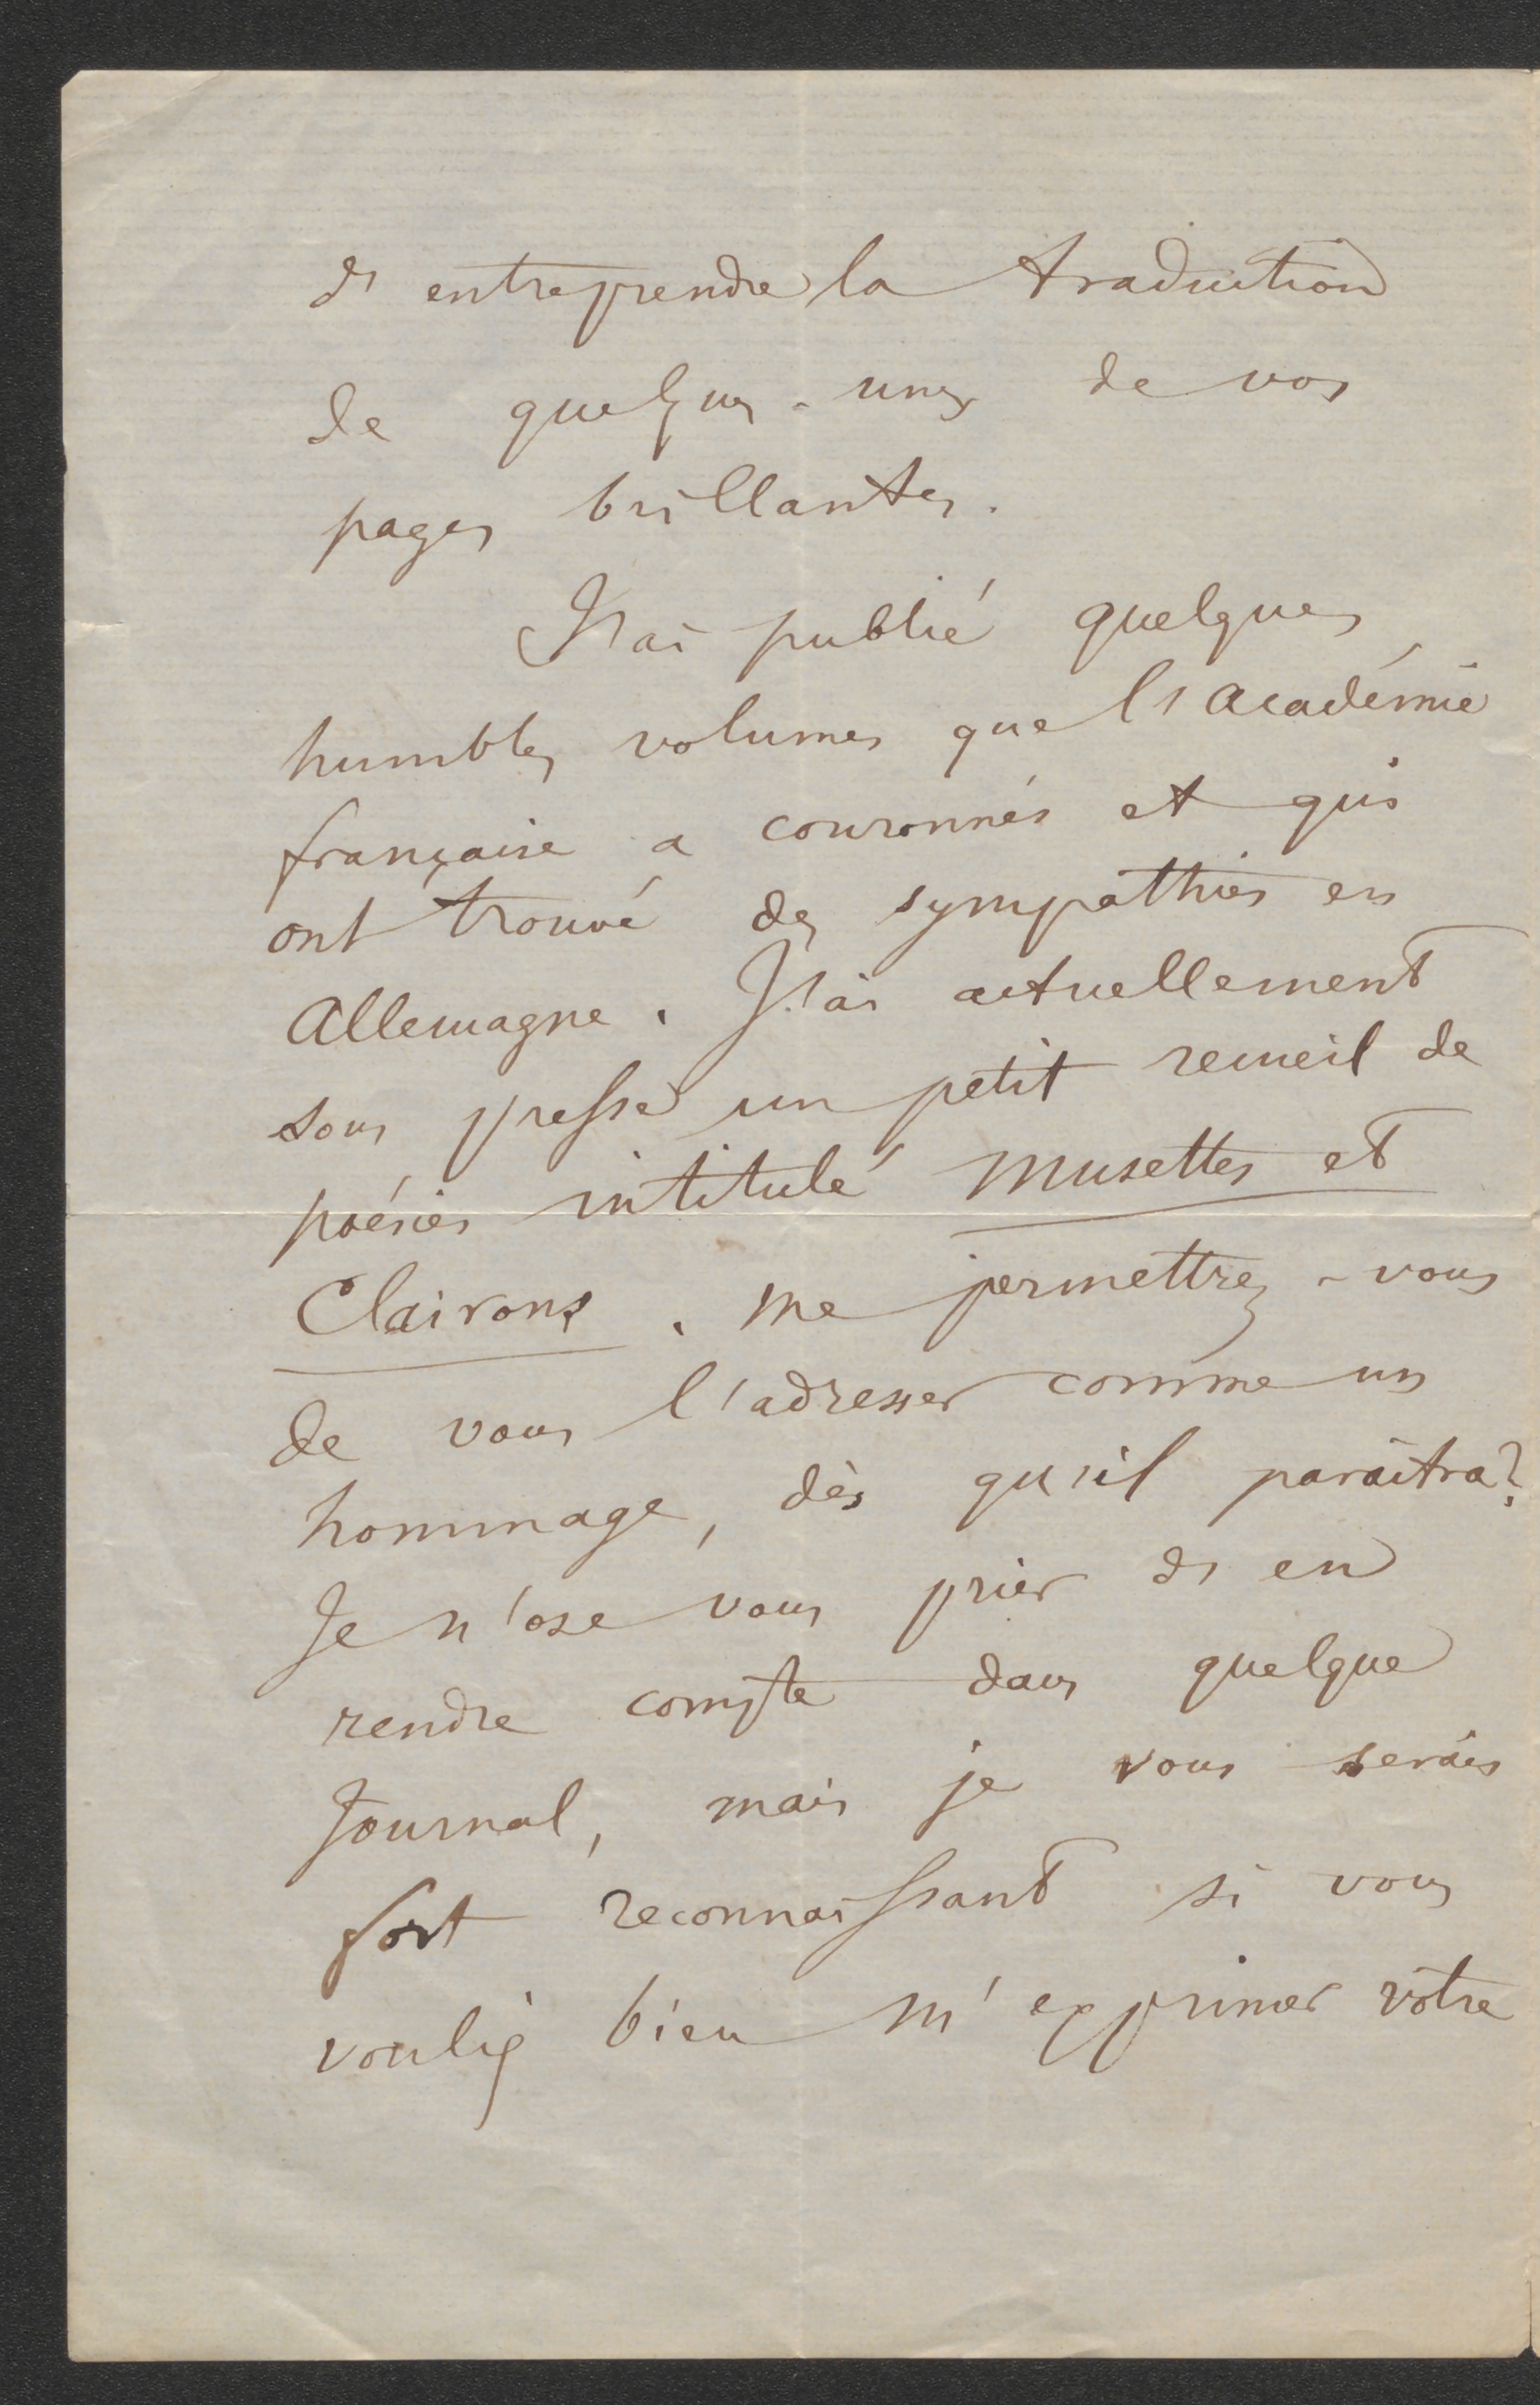 d'entreprendre la traduction
de quelques-unes de vos
pages brillantes.
J'ai publié quelques
humbles volumes que l'Académie
française a couronnés et qui
ont trouvé des sympathies en
Allemagne. J'ai actuellement
sous presse un petit recueil de
poésies intitulé Musettes et
Clairons. Me permettrez-vous
de vous l'adresser comme un
hommage, dès qu'il paraîtra?
Je n'ose vous prier d'en
rendre compte dans quelque
Journal, mais je vous serais
fort reconnaissant si vous
vouliez bien m'exprimer votre